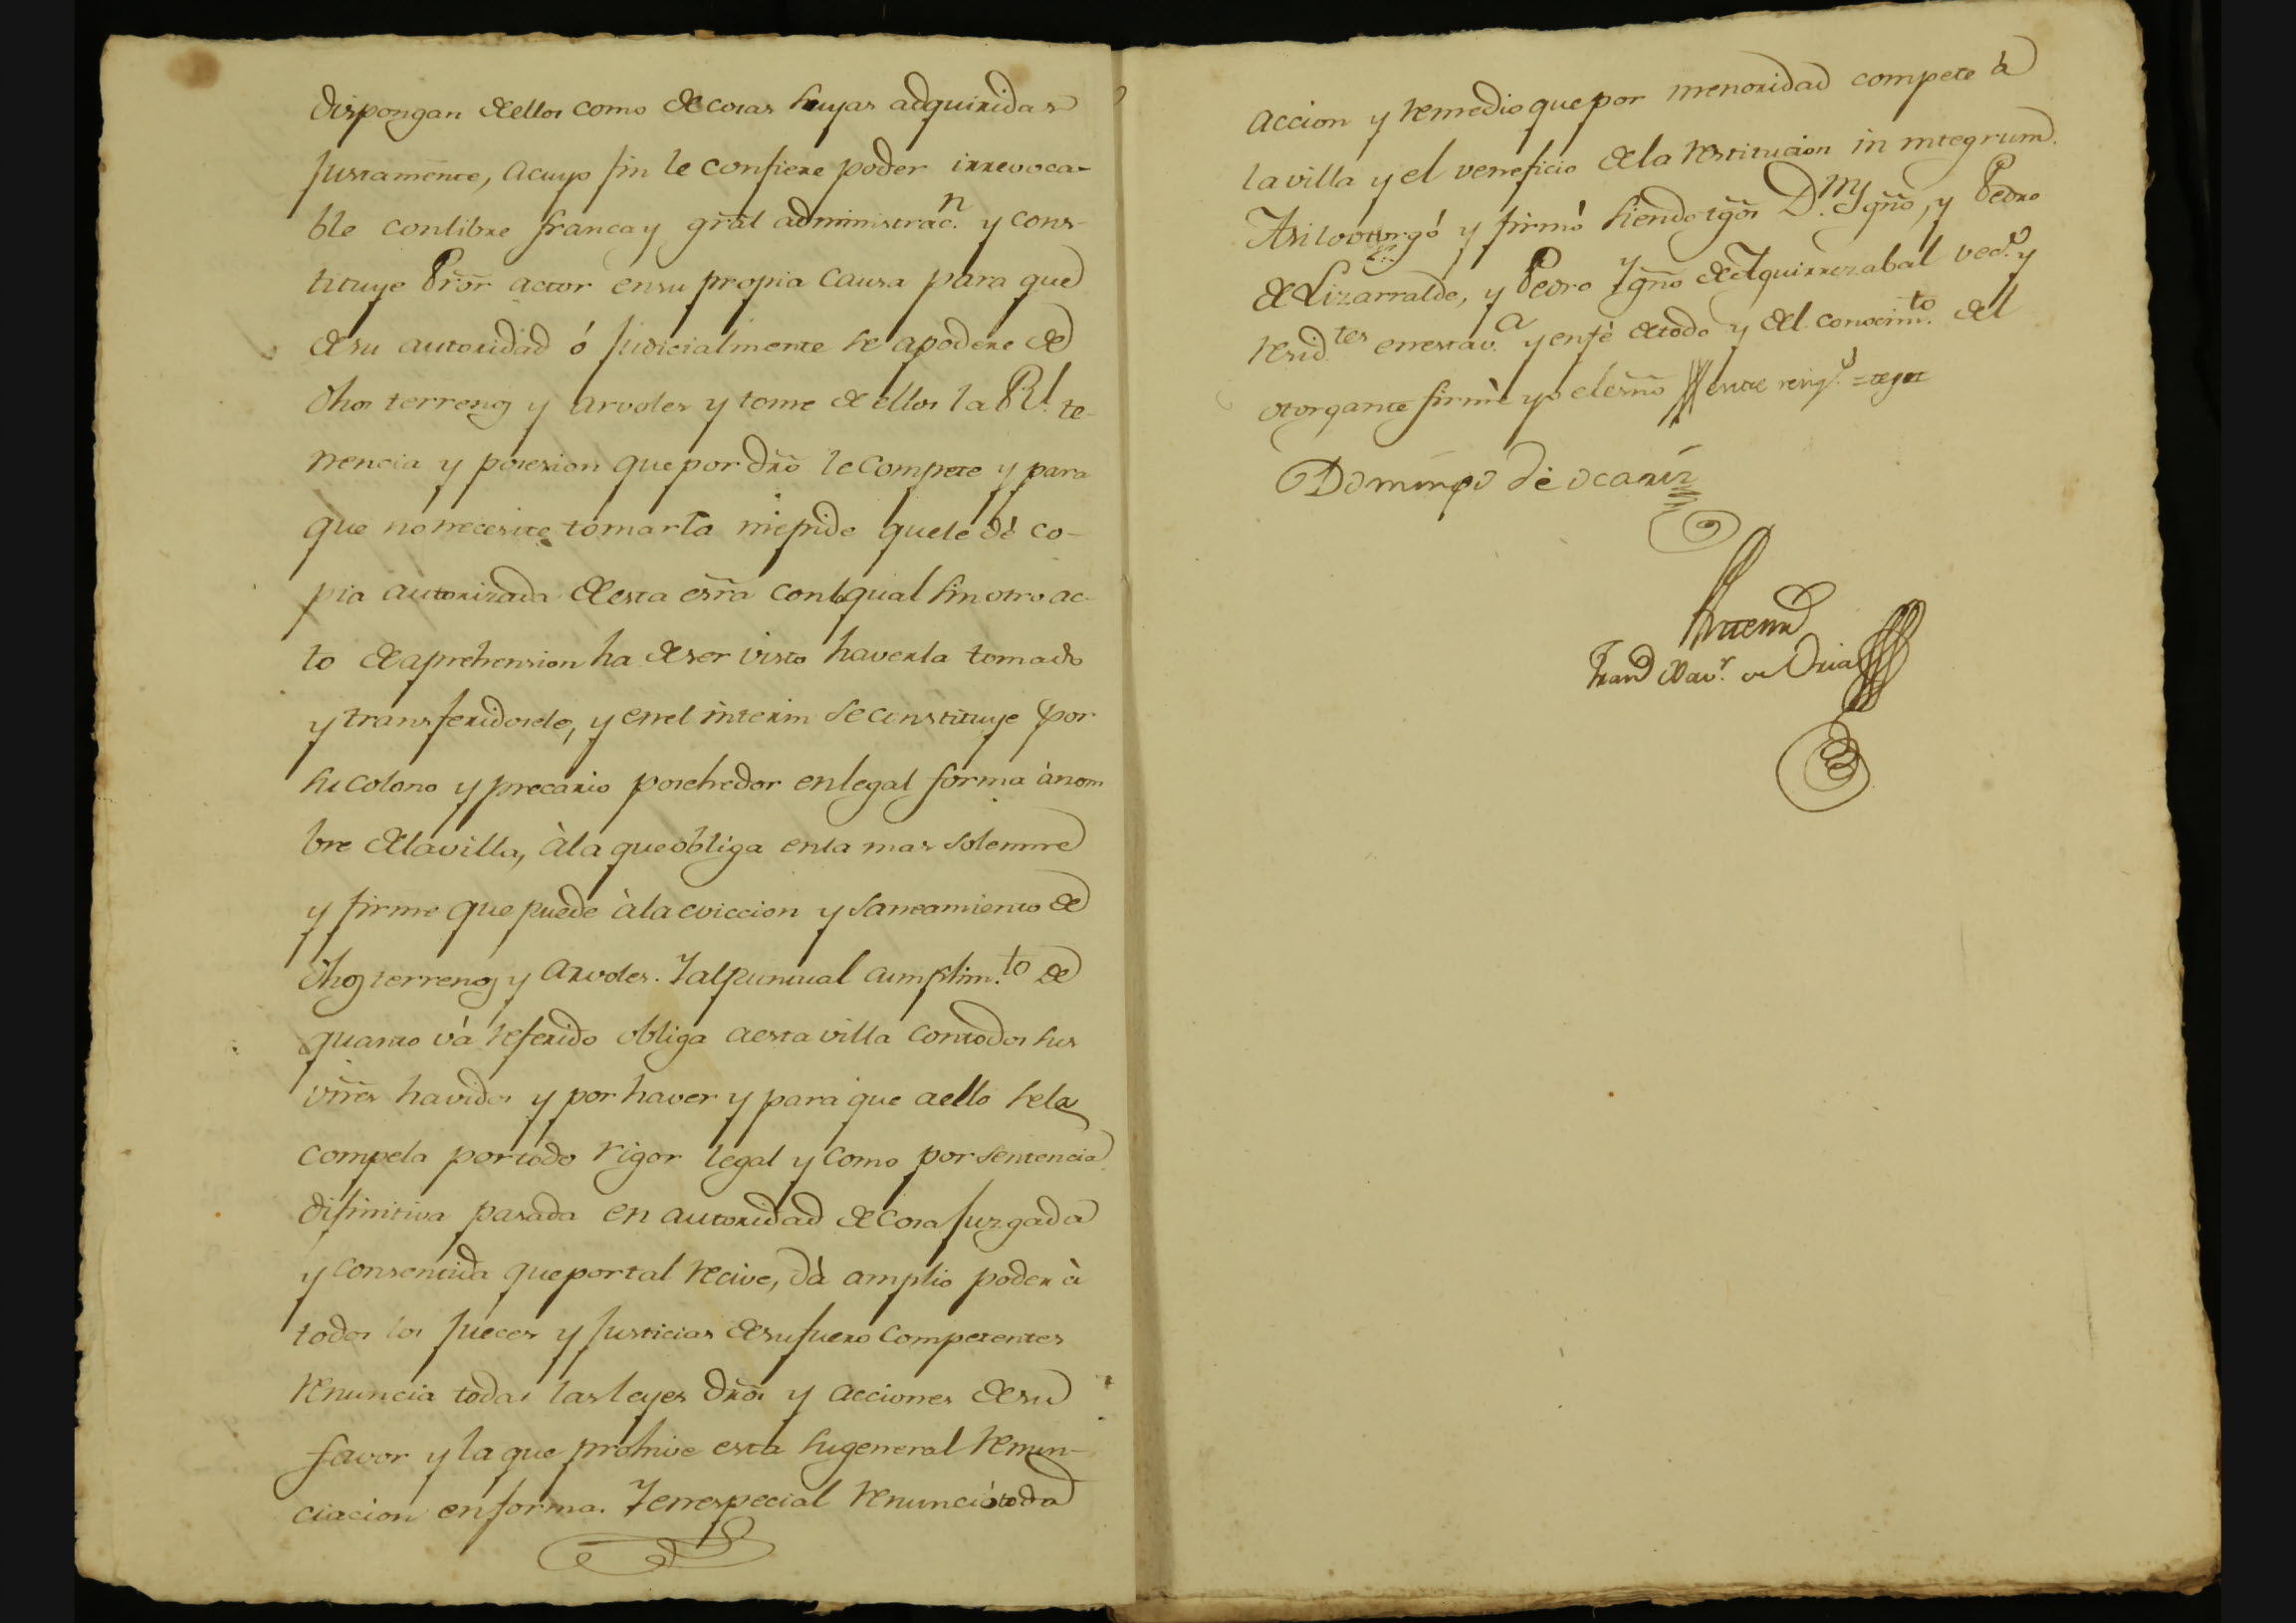 dispongan de ellos como de cosas suyas adquiridas
justamente, a cuyo fin le confiere poder irrevoca-
ble con libre franca y gr̃al administrac.n y cons-
tituye Pr̃or actor en su propia causa para que
de su autoridad ó judicialmente se apodere de
dhos terrenos y arvoles y tome de ellos la Rl. te-
nencia y posesion que por dr̃o le compete y para
que no necesite tomarla me pide que le dè co-
pia autorizada de esta esr̃a con la qual sin otro ac-
to de aprehension ha de ser visto haverla tomado
y transferidosele, y en el interin se constituye por
su colono y precario posehedor en legal forma à nom
bre de la villa, à la que obliga en la mas solemne
y firme que puede à la eviccion y saneamiento de
dhos terrenos y arvoles. Y al puntual cumplim.to de
quanto và referido obliga a esta villa con todos sus
vñes havidos y por haver y para que a ello se la
compela por todo rigor legal y como por sentencia
difinitiva pasada en autoridad de cosa juzgada
y consentida que por tal recive, dà amplio poder à
todos los jueces y justicias de su fuero competentes
renuncia todas las leyes dr̃os y acciones de su
favor y la que prohive esta su general renun-
ciacion en forma. Y en especial renunció toda
accion y remedio que por menoridad compete à
la villa y el veneficio de la restitucion in integrum.
Asi lo otorgó y firmó siendo tg̃os D.n Ygño, y Pedro
de Lizarralde, y Pedro Ygño de Aguirrezabal vec.s y
resid.tes en esta v.a y en fè de todo y del conocim.to del
otorgante firmè yo el esño entre reng.s
Domingo de ocariz
Antemi
Fran.co Xav.r de Oria